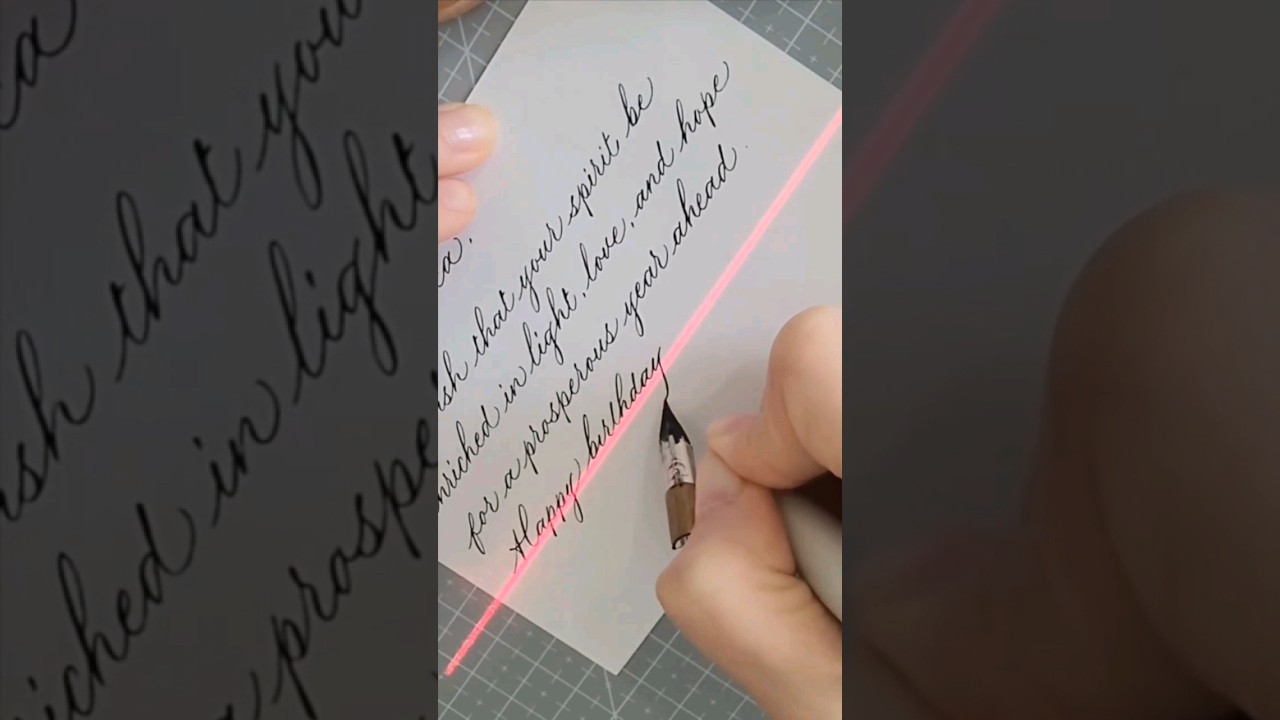 a,
that your spirit be
enriched in light, love, and hope
for a prosperous year ahead.
Happy birthday